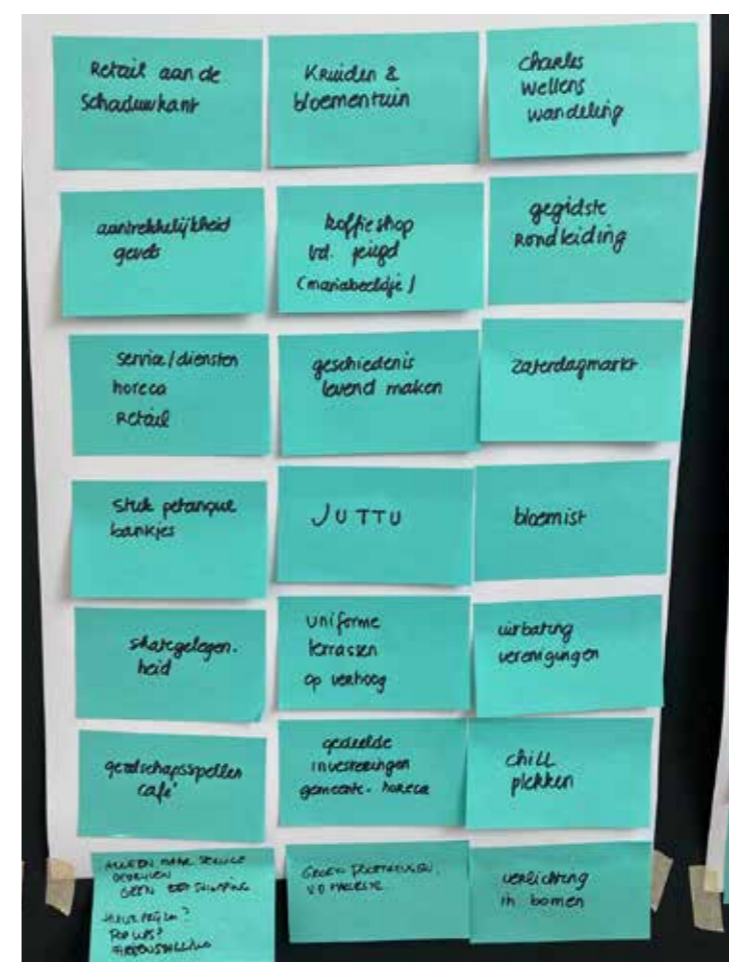 Retail aan de
Schaduwkant
Kruiden &
bloementuin
Charles
Wellens
wandeling
aantrekkelijkheid
gevels
koffieshop
vd. jeugd
(mariabeeldje)
gegidste
Rondleiding
service/diensten
horeca
Retail
geschiedenis
levend maken
zaterdagmarkt
stuk petanque
bankjes
JUTTU
bloemist
skategelegen-
heid
uniforme
terrassen
op verhoog
uitbating
verenigingen
gezelschapsspellen
café
gedeelde
investeringen
gemeente - horeca
chill
plekken
ALLEEN MAAR SERVICE
GEEN
HUURPRIJZEN?
POP UPS?
GEEN
verlichting
in bomen